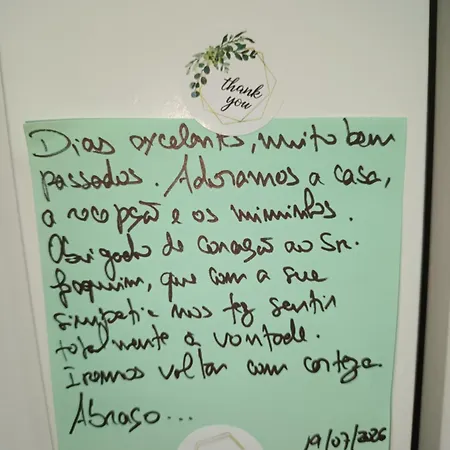 thank
you
Dias excelentes, muito bem
passados. Adoramos a casa,
a recepção e os miminhos.
Obrigado de coração ao Sr.
Joaquim, que com a sua
simpatia nos fez sentir
totalmente à vontade.
Iremos voltar com certeza.
Abraço...
19/07/2026